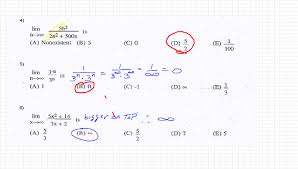 4) lim n→∞ 5n² / 2n² + 500n is
(A) Nonexistent (B) 5 (C) 0 (D) 5/2 (E) 1/100
5) lim n→∞ 3⁻ⁿ / 3ⁿ is = 1 / 3ⁿ · 3ⁿ = 1 / 3^∞ · 3^∞ = 1/∞ = 0
(A) 1 (B) 0 (D) ∞ (E) 1/3
6) lim x→∞ 5x² + 16 / 3x + 2 is bigger on Top ∴ ∞
(A) 5/3 (B) ∞ (C) 5/2 (D) 7 (E) 5